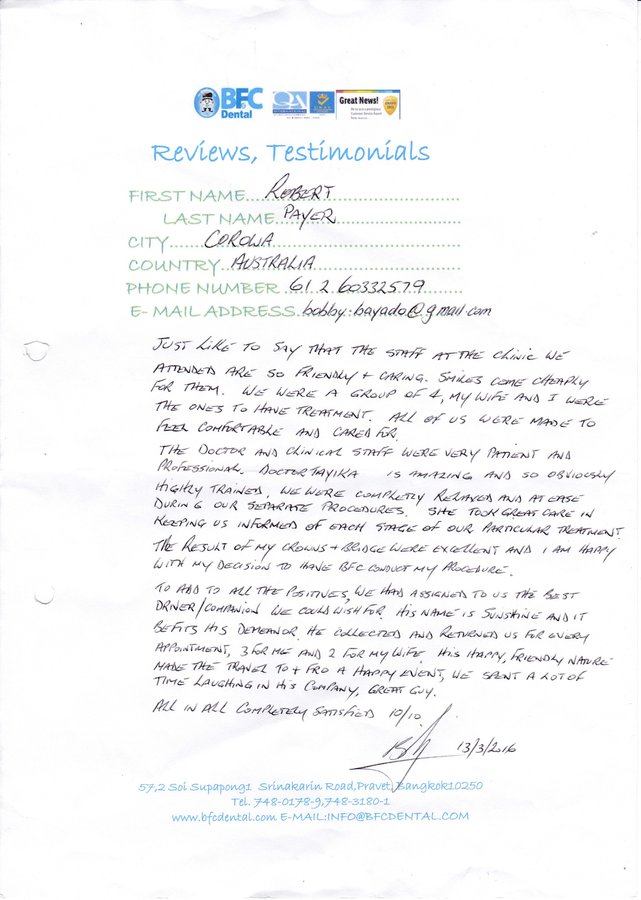 BFC
Dental
QA
INTERNATIONAL
UKAS
Great News!
Reviews, Testimonials
FIRST NAME...ROBERT
LAST NAME.PAYER
CITY......COROWA
COUNTRY..AUSTRALIA
PHONE NUMBER..61 2 60332579
E- MAIL ADDRESS.bobby.bayado@gmail.com
JUST LIKE TO SAY THAT THE STAFF AT THE CLINIC WE
ATTENDED ARE SO FRIENDLY + CARING. SMILES COME CHEAPLY
FOR THEM. WE WERE A GROUP OF 4, MY WIFE AND I WERE
THE ONES TO HAVE TREATMENT. ALL OF US WERE MADE TO
FEEL COMFORTABLE AND CARED FOR.
THE DOCTOR AND CLINICAL STAFF WERE VERY PATIENT AND
PROFESSIONAL. DOCTOR TAYIKA IS AMAZING AND SO OBVIOUSLY
HIGHLY TRAINED. WE WERE COMPLETLY RELAXED AND AT EASE
DURING OUR SEPARATE PROCEDURES. SHE TOOK GREAT CARE IN
KEEPING US INFORMED OF EACH STAGE OF OUR PARTICULAR TREATMENT.
THE RESULT OF MY CROWNS + BRIDGE WERE EXCELLENT AND I AM HAPPY
WITH MY DECISION TO HAVE BFC CONDUCT MY PROCEDURE.
TO ADD TO ALL THE POSITIVES, WE HAD ASSIGNED TO US THE BEST
DRIVER/COMPANION WE COULD WISH FOR. HIS NAME IS SUNSHINE AND IT
BEFITS HIS DEMEANOR. HE COLLECTED AND RETURNED US FOR EVERY
APPOINTMENT, 3 FOR ME AND 2 FOR MY WIFE. HIS HAPPY, FRIENDLY NATURE
MADE THE TRAVEL TO + FRO A HAPPY EVENT, WE SPENT A LOT OF
TIME LAUGHING IN HIS COMPANY, GREAT GUY.
ALL IN ALL COMPLETELY SATISFIED 10/10.
13/3/2016
57,2 Soi Supapong1 Srinakarin Road,Pravet,Bangkok10250
Tel. 748-0178-9,748-3180-1
www.bfcdental.com E-MAIL:INFO@BFCDENTAL.COM